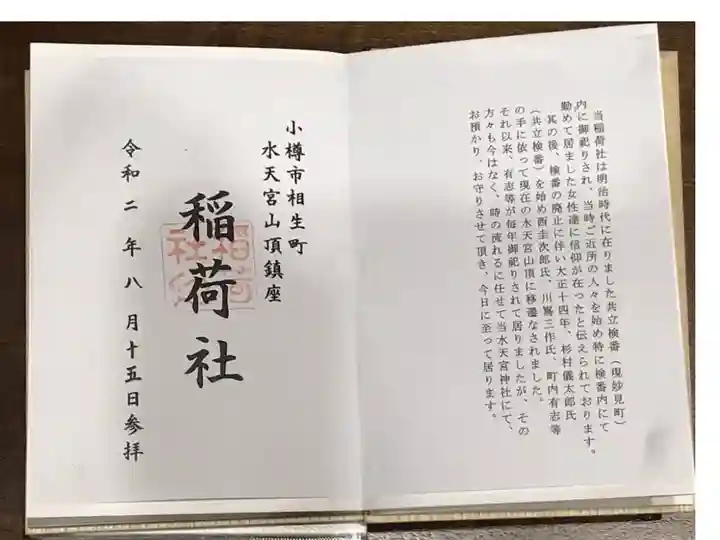 当稲荷社は明治時代に在りました共立検番（現妙見町）
内に御祀りされ、当時ご近所の人々を始め特に検番内にて
勤めて居ました女性達に信仰が在ったと伝えられております。
其の後、検番の廃止に伴い大正十四年、杉村儀太郎氏
（共立検番）を始め西圭次郎氏、川嶌三作氏、町内有志等
の手に依って現在の水天宮山頂に移遷なされました。
それ以来、有志等が毎年御祀りされて居りましたが、その
方々も今はなく、時の流れるに任せて当水天宮神社にて、
お預かり、お守りさせて頂き、今日に至って居ります。
小樽市相生町
水天宮山頂鎮座
稲荷社
令和二年八月十五日参拝